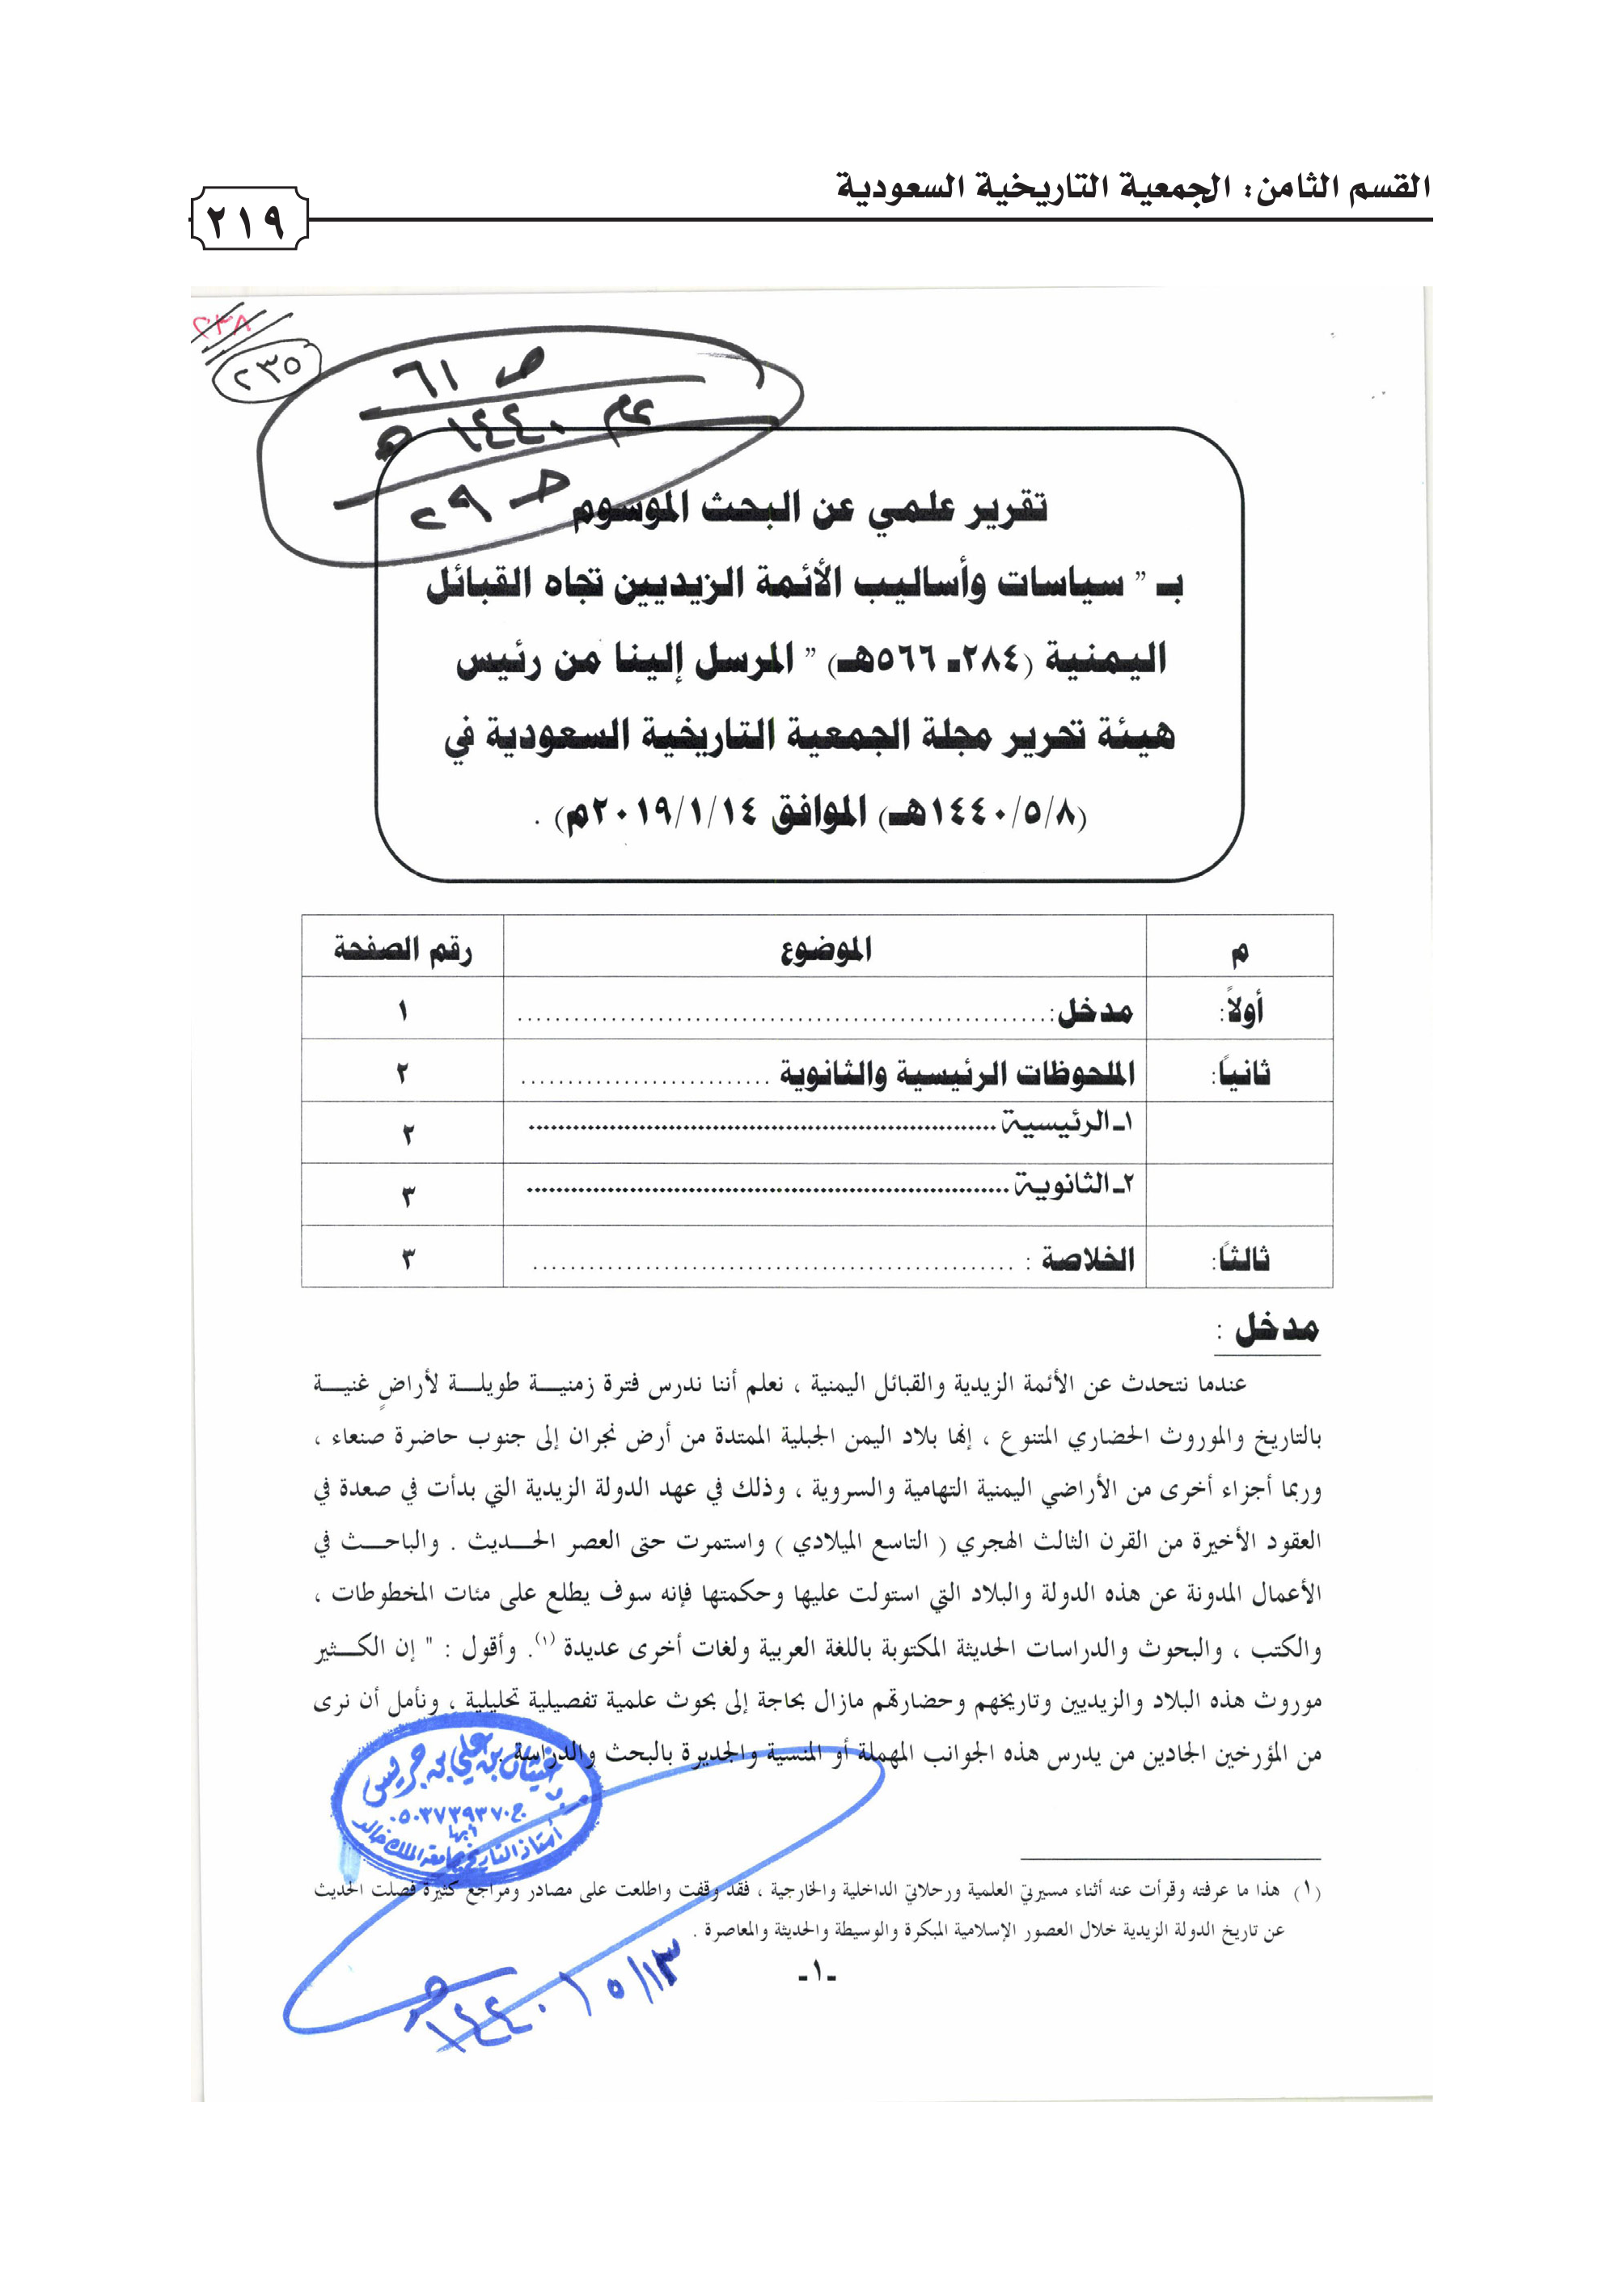 القسم الثامن: الجمعية التاريخية السعودية
٢١٩
٢٣٨
٢٣٥
ص ٦١
عام ١٤٤٠ هـ
حـ ٢٩
تقرير علمي عن البحث الموسوم
بـ " سياسات وأساليب الأئمة الزيديين تجاه القبائل
اليمنية (٢٨٤ـ ٥٦٦هـ) " المرسل إلينا من رئيس
هيئة تحرير مجلة الجمعية التاريخية السعودية في
(١٤٤٠/٥/٨هـ) الموافق ٢٠١٩/١/١٤م) .
م الموضوع رقم الصفحة
أولاً: مدخل:........................................................ ١
ثانياً: الملحوظات الرئيسية والثانوية ........................... ٢
١ـ الرئيسية................................................................ ٢
٢ـ الثانوية.................................................................. ٣
ثالثاً: الخلاصة : .................................................... ٣
مدخل :
عندما نتحدث عن الأئمة الزيدية والقبائل اليمنية ، نعلم أننا ندرس فترة زمنيـــة طويلـــة لأراضٍ غنيـــة
بالتاريخ والموروث الحضاري المتنوع ، إنها بلاد اليمن الجبلية الممتدة من أرض نجران إلى جنوب حاضرة صنعاء ،
وربما أجزاء أخرى من الأراضي اليمنية التهامية والسروية ، وذلك في عهد الدولة الزيدية التي بدأت في صعدة في
العقود الأخيرة من القرن الثالث الهجري ( التاسع الميلادي ) واستمرت حتى العصر الحـــديث . والباحـــث في
الأعمال المدونة عن هذه الدولة والبلاد التي استولت عليها وحكمتها فإنه سوف يطلع على مئات المخطوطات ،
والكتب ، والبحوث والدراسات الحديثة المكتوبة باللغة العربية ولغات أخرى عديدة (١). وأقول : " إن الكـــثير
موروث هذه البلاد والزيديين وتاريخهم وحضارتهم مازال بحاجة إلى بحوث علمية تفصيلية تحليلية ، ونأمل أن نرى
من المؤرخين الجادين من يدرس هذه الجوانب المهملة أو المنسية والجديرة بالبحث والدراسة
غيثان بن علي بن جريس
ج٠٥٠٣٧٣٩٣٧٠
أبها
أستاذ التاريخ بجامعة الملك خالد
(١) هذا ما عرفته وقرأت عنه أثناء مسيرتي العلمية ورحلاتي الداخلية والخارجية ، فقد وقفت واطلعت على مصادر ومراجع كثيرة فصلت الحديث
عن تاريخ الدولة الزيدية خلال العصور الإسلامية المبكرة والوسيطة والحديثة والمعاصرة .
-١-
١٤٤٠/٥/١٣هـ